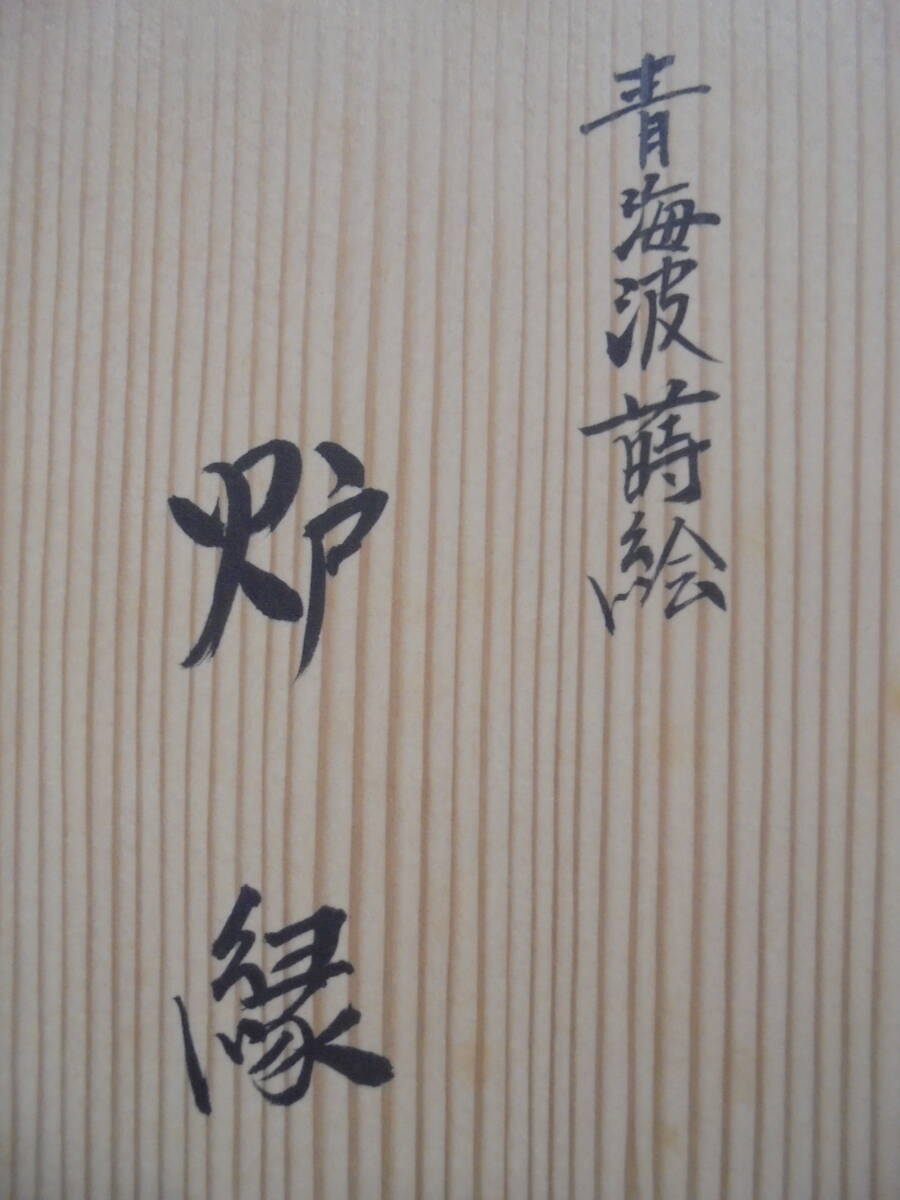 青海波蒔絵
炉縁